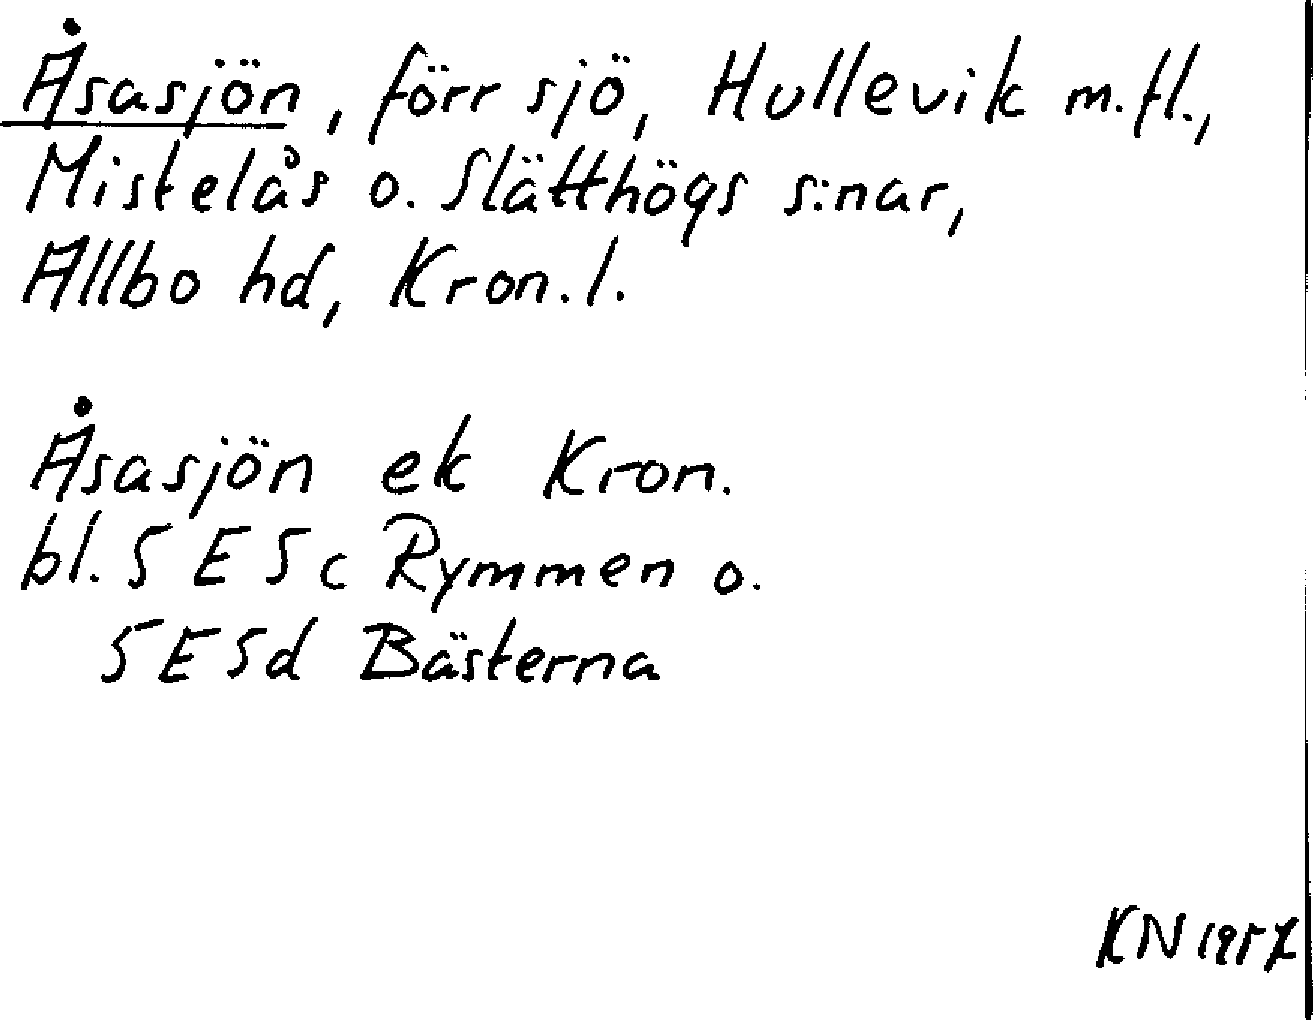 Åsasjön, förr sjö, Hullevik m.fl.,
Mistelås o. Slätthögs s:nar,
Allbo hd, Kron.l.
Åsasjön ek Kron.
bl. 5 E 5c Rymmen o.
5 E 5d Bästerna
KN 1957